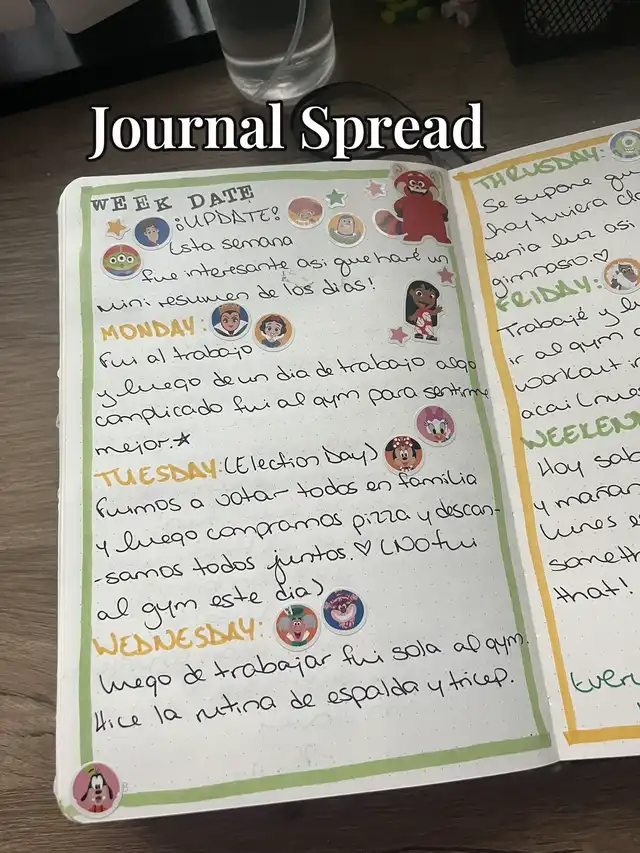 Journal Spread
WEEK DATE
¡UPDATE!
Esta semana
fue interesante asi que haré un
mini resumen de los dias!
MONDAY:
Fui al trabajo
y luego de un dia de trabajo algo
complicado fui al gym para sentirme
mejor.★
TUESDAY: (Election Day)
Fuimos a votar todos en familia
y luego compramos pizza y descan-
-samos todos juntos.♡ (No fui
al gym este dia)
WEDNESDAY:
luego de trabajar fui sola al gym.
Hice la rutina de espalda y tricep.
THRUSDAY:
Se supone qu
hoy tuviera cla
tenia luz asi
gimnasio.♡
FRIDAY:
Trabajé y l
ir al gym
workout i
acai (nu
WEEKEN
Hoy sab
y mañan
lunes e
someth
that!
Every